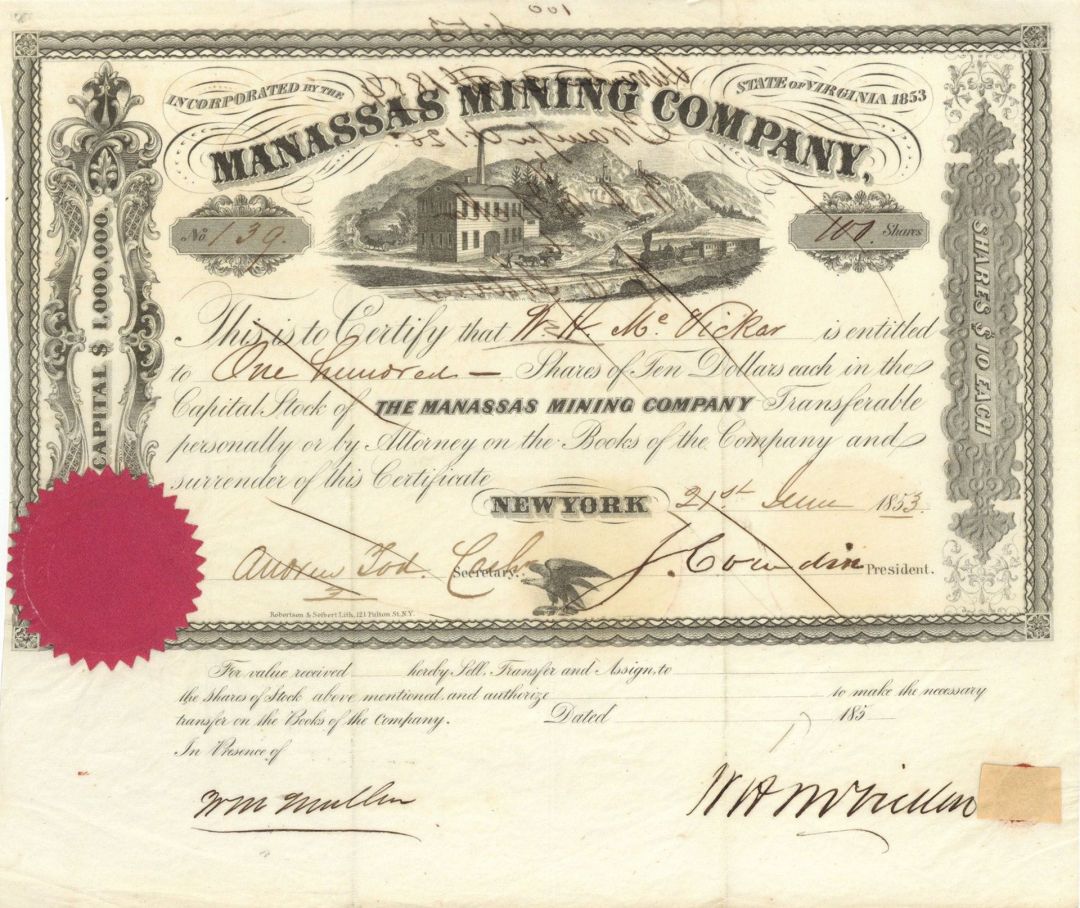 100
INCORPORATED BY THE STATE OF VIRGINIA 1853
MANASSAS MINING COMPANY,
CAPITAL $ 1,000,000.
SHARES $ 10 EACH
No 139. 100. Shares
This is to Certify that W. H. Mc Vickar is entitled
to One hundred — Shares of Ten Dollars each in the
Capital Stock of THE MANASSAS MINING COMPANY Transferable
personally or by Attorney on the Books of the Company and
surrender of this Certificate
NEW YORK 21st June 1853
Andrew Tod. Secretary. J. Cowdin President.
Robertson & Seibert Lith, 121 Fulton St. N.Y.
For value received hereby Sell, Transfer and Assign, to
the Shares of Stock above mentioned, and authorize to make the necessary
transfer on the Books of the Company. Dated 185
In Presence of
Wm Mullen W H McVickar